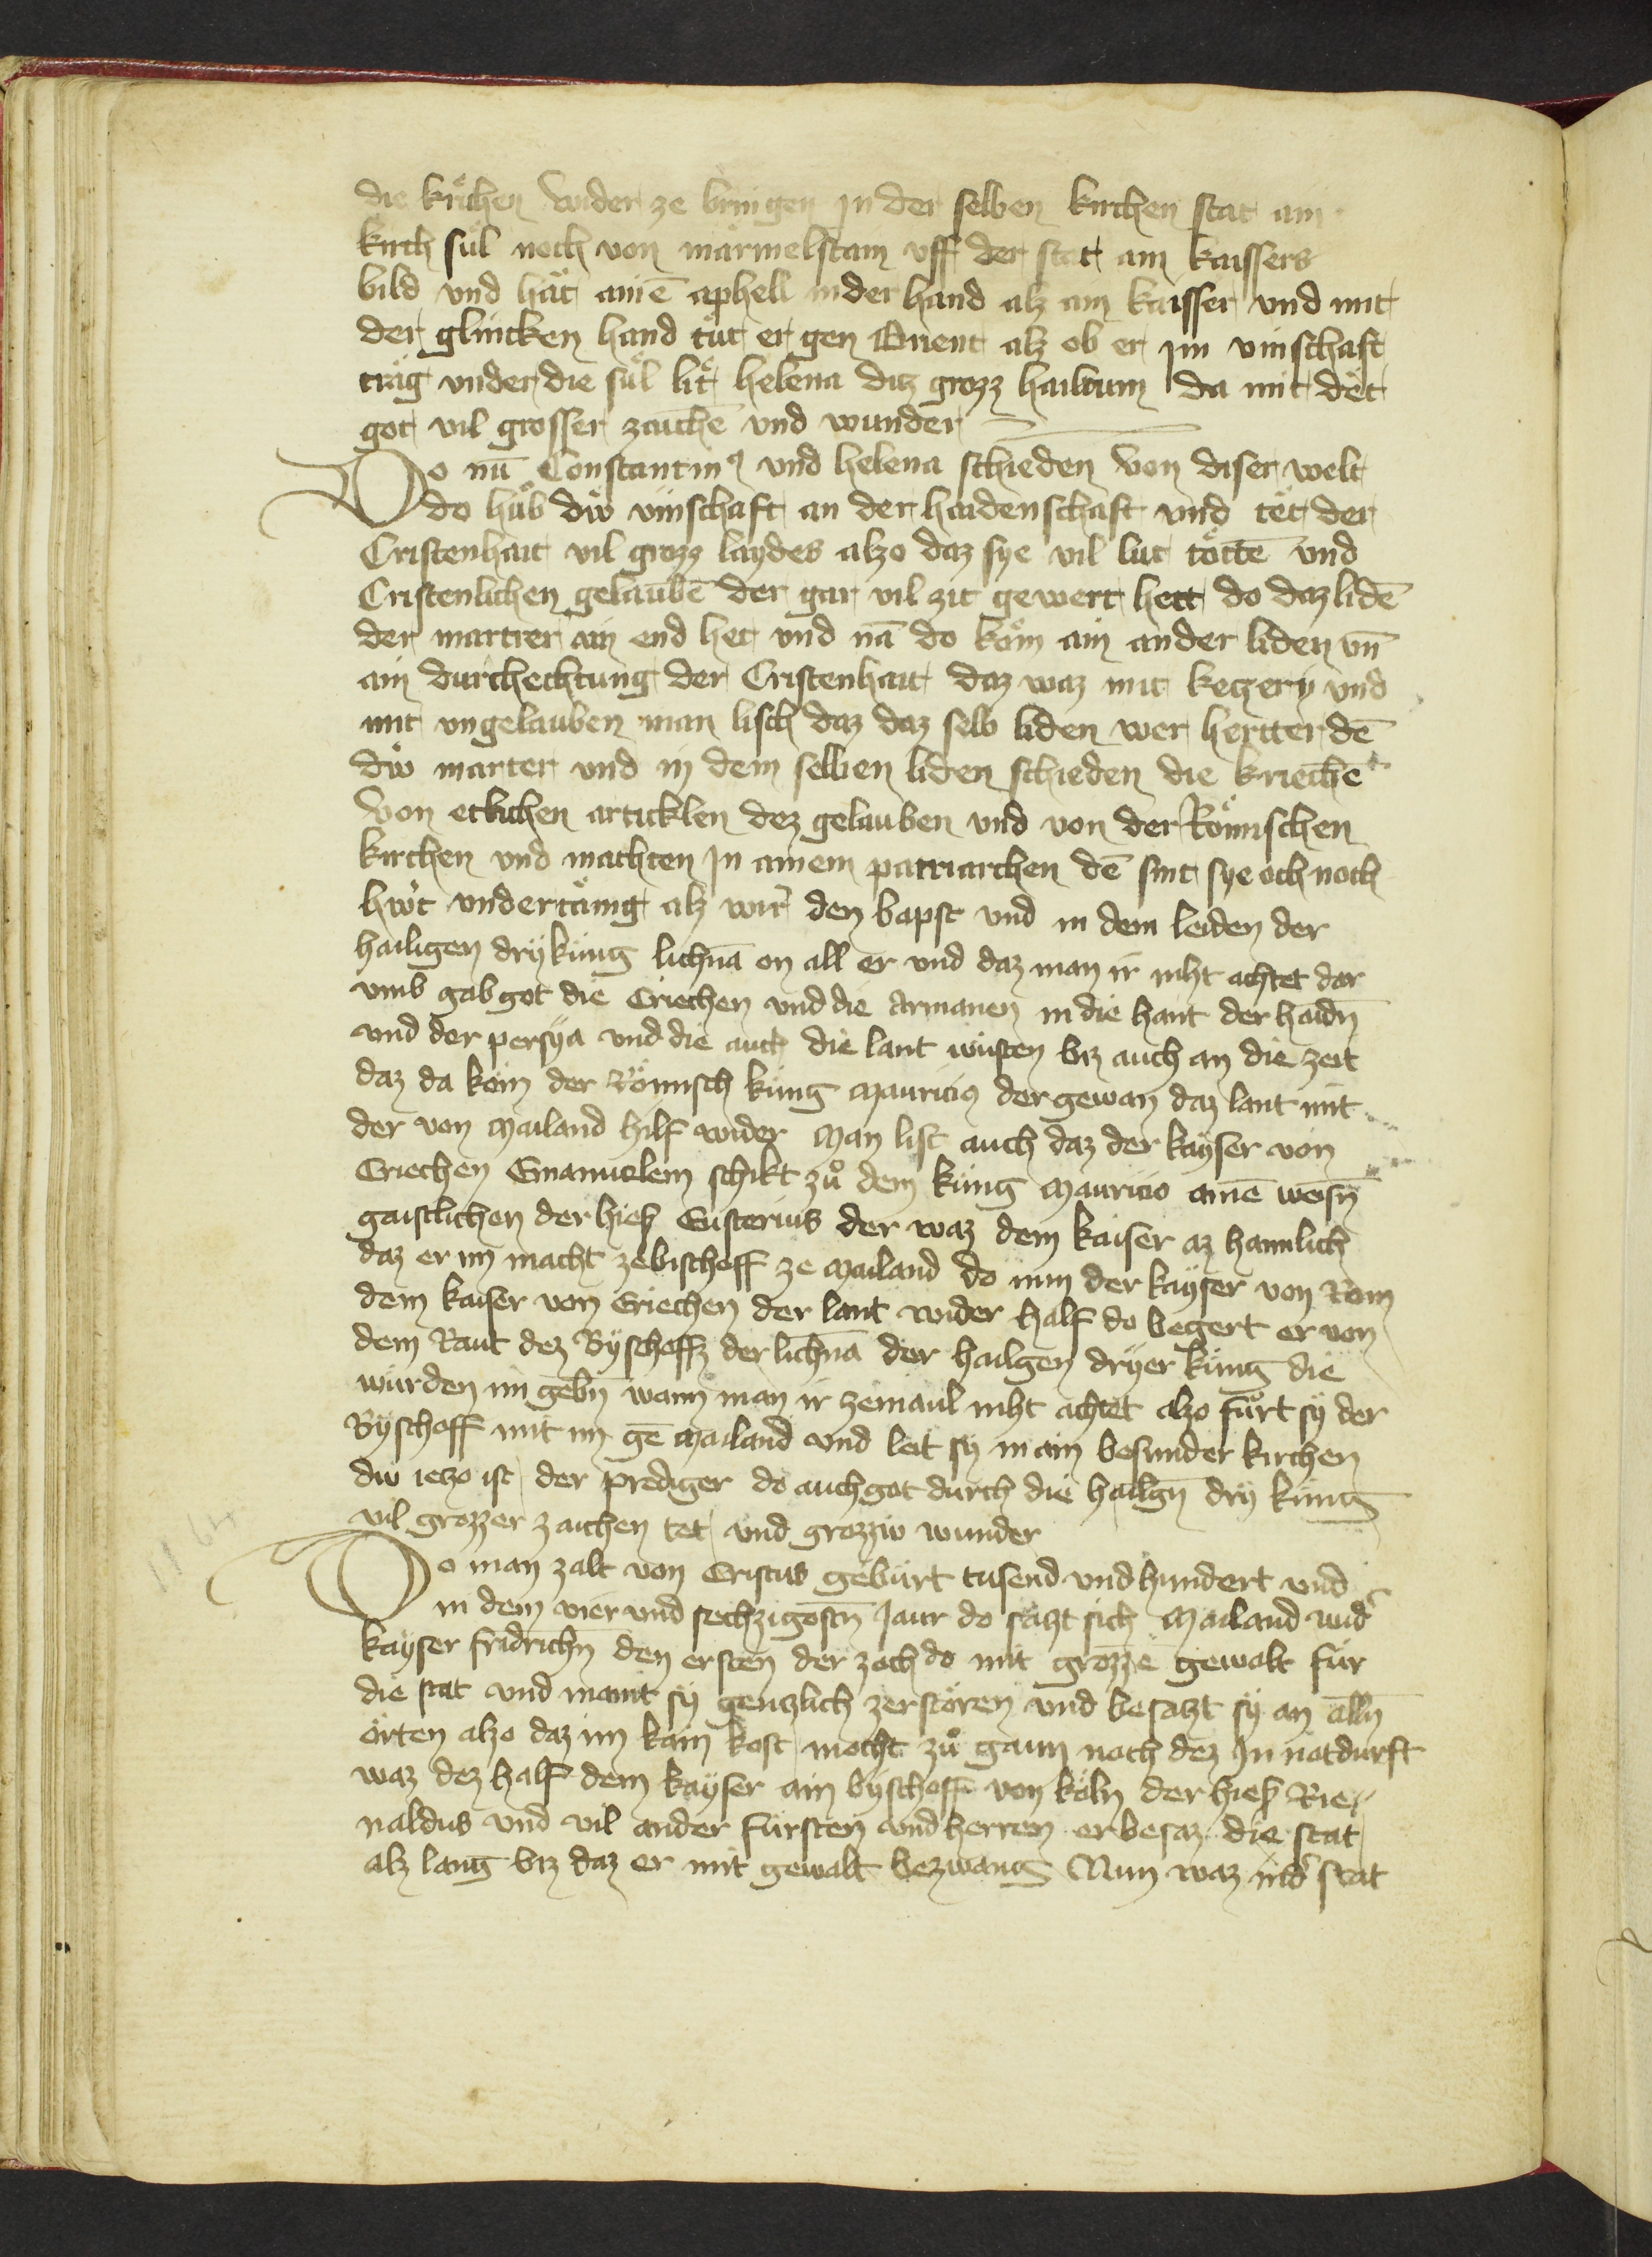 die kirchen wider ze bringen Jn der selben kirchen stat ain
kirch sul noch von märmelstain vff der stat ain kaissers
bild vnd hät ainē aphell in der hand alz ain kaisser vnd mit
der glincken hand tüt er gen Orient alz ob er im vinschaft
träg vnder die sul lit helena diz grozz hailtum da mit dët
got vil grosser zaichē vnd wunder
Do nū Constantin9 vnd helena schieden von diser welt
do hůb diw vinschaft an der haidenschaft vnd tët der
Cristenhait vil grozz laydes alzo daz sye vil lut töttē vnd
Cristenlichen gelaubē der gar vil zit gewert hett do daz lidē
der martrer ain end het vnd nā do kom ain ander liden vn̄
ain durchechtung der Cristenhait daz waz mit keczery vnd
mit vngelauben man lisch daz daz selb liden wer hertter dē
diw marter vnd in dem selben liden schieden die kriechē
von etlichen articklen dez gelauben vnd von der Römischen
kirchen vnd machten Jn ainem patriarchen dē sint sye och noch
hiwt vndertänig alz wir den bapst vnd in dem leiden der
hailigen dry küng lichnā on all er vnd daz man ir niht achtet dar
vmb gab got die Criechen vnd die Armanen in die hant der haidn̄
vnd der persya vnd die auch die lant wüsten biz auch an die zeit
daz da kom der Römisch küng Mauricio der gewan daz lant mit
der von Mailand hilf wider Man list auch daz der kayser von
Criechen Emanuelem schikt zů dem küng Mauricio ainē weisn̄
gaistlichen der hieß Eustorius der waz dem kaiser az haimlich
daz er im macht ze bischoff ze Mailand do nun der kayser von Rom
dem kaiser von Criechen der lant wider half do begert er von
dem Raut dez Byschoffz der lichnā der hailgen dryer küng die
wurden im gebn̄ wann man ir zemaul niht achtet alzo fůrt sy der
Byschoff mit im gē Mailand vnd leit sy in ain besunder kirchen
diw ieczo ist der prediger do auch got durch die hailgn̄ dry küng
vil grozzer zaichen tet vnd grozziw wunder
Do man zalt von Cristus gebürt tusend vnd hundert vnd
in dem vier vnd sechzigostn̄ Jaur do saczt sich Mailand wid'
kayser fridrichn̄ den ersten der zoch do mit grozzē gewalt für
die stat vnd maint sy genczlich zerstören vnd besatzt sy an alln̄
örten alzo daz im kain kost mocht zů gaun noch dez Jn notdurft
waz dez half dem kayser ain byschoff von köln der hieß Rie-
naldus vnd vil ander fürsten vnd herren er besaz die stat
alz lang biz daz er mit gewalt bezwang Nun waz in d' stat
1164